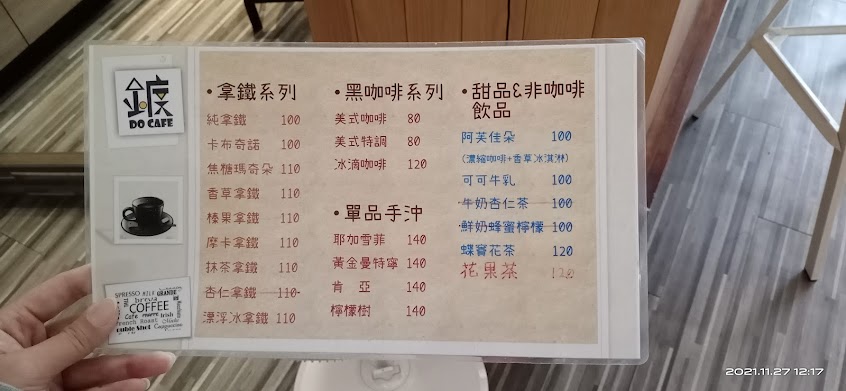 鍍
DO CAFE
ESPRESSO MILK GRANDE
COFFEE
Cafe
Irish
French Roast
Double Shot
• 拿鐵系列
純拿鐵 100
卡布奇諾 100
焦糖瑪奇朵 110
香草拿鐵 110
榛果拿鐵 110
摩卡拿鐵 110
抹茶拿鐵 110
杏仁拿鐵 110
漂浮冰拿鐵 110
• 黑咖啡系列
美式咖啡 80
美式特調 80
冰滴咖啡 120
• 單品手沖
耶加雪菲 140
黃金曼特寧 140
肯亞 140
檸檬樹 140
• 甜品&非咖啡
飲品
阿芙佳朵 100
(濃縮咖啡+香草冰淇淋)
可可牛乳 100
牛奶杏仁茶 100
鮮奶蜂蜜檸檬 100
蝶寶花茶 120
花果茶 120
2021.11.27 12:17